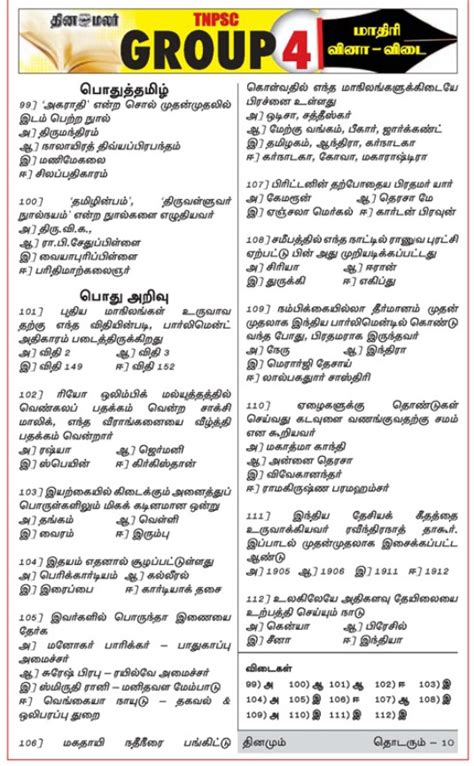 தினமலர்
TNPSC
GROUP 4
மாதிரி
வினா - விடை
பொதுத்தமிழ்
99] 'அகராதி' என்ற சொல் முதன்முதலில்
இடம் பெற்ற நூல்
அ] திருமந்திரம்
ஆ] நாலாயிரத் திவ்யப்பிரபந்தம்
இ] மணிமேகலை
ஈ] சிலப்பதிகாரம்
100] 'தமிழின்பம்', 'திருவள்ளுவர்
நூல்நயம்' என்ற நூல்களை எழுதியவர்
அ] திரு.வி.க.,
ஆ] ரா.பி.சேதுப்பிள்ளை
இ] வையாபுரிப்பிள்ளை
ஈ] பரிதிமாற்கலைஞர்
பொது அறிவு
101] புதிய மாநிலங்கள் உருவாவ
தற்கு எந்த விதியின்படி, பார்லிமென்ட்
அதிகாரம் படைத்திருக்கிறது
அ] விதி 2 ஆ] விதி 3
இ] விதி 149 ஈ] விதி 152
102] ரியோ ஒலிம்பிக் மல்யுத்தத்தில்
வெண்கலப் பதக்கம் வென்ற சாக்சி
மாலிக், எந்த வீராங்கனையை வீழ்த்தி
பதக்கம் வென்றார்
அ] ரஷ்யா ஆ] ஜெர்மனி
இ] ஸ்பெயின் ஈ] கிர்கிஸ்தான்
103] இயற்கையில் கிடைக்கும் அனைத்துப்
பொருள்களிலும் மிகக் கடினமான ஒன்று
அ] தங்கம் ஆ] வெள்ளி
இ] வைரம் ஈ] இரும்பு
104] இதயம் எதனால் சூழப்பட்டுள்ளது
அ] பெரிக்கார்டியம் ஆ] கல்லீரல்
இ] இரைப்பை ஈ] கார்டியாக் தசை
105] இவர்களில் பொருந்தா இணையை
தேர்க
அ] மனோகர் பாரிக்கர் – பாதுகாப்பு
அமைச்சர்
ஆ] சுரேஷ் பிரபு – ரயில்வே அமைச்சர்
இ] ஸ்மிருதி ரானி – மனிதவள மேம்பாடு
ஈ] வெங்கையா நாயுடு – தகவல் &
ஒலிபரப்பு துறை
106] மகதாயி நதிநீரை பங்கிட்டு
கொள்வதில் எந்த மாநிலங்களுக்கிடையே
பிரச்னை உள்ளது
அ] ஒடிசா, சத்தீஸ்கர்
ஆ] மேற்கு வங்கம், பீகார், ஜார்க்கண்ட்
இ] தமிழகம், ஆந்திரா, கர்நாடகா
ஈ] கர்நாடகா, கோவா, மகாராஷ்டிரா
107] பிரிட்டனின் தற்போதைய பிரதமர் யார்
அ] கேமரூன் ஆ] தெரசா மே
இ] ஏஞ்சலா மெர்கல் ஈ] கார்டன் பிரவுன்
108] சமீபத்தில் எந்த நாட்டில் ராணுவ புரட்சி
ஏற்பட்டு பின் அது முறியடிக்கப்பட்டது
அ] சிரியா ஆ] ஈரான்
இ] துருக்கி ஈ] எகிப்து
109] நம்பிக்கையில்லா தீர்மானம் முதன்
முதலாக இந்திய பார்லிமென்டில் கொண்டு
வந்த போது, பிரதமராக இருந்தவர்
அ] நேரு ஆ] இந்திரா
இ] மெரார்ஜி தேசாய்
ஈ] லால்பகதூர் சாஸ்திரி
110] ஏழைகளுக்கு தொண்டுகள்
செய்வது கடவுளை வணங்குவதற்கு சமம்
என கூறியவர்
அ] மகாத்மா காந்தி
ஆ] அன்னை தெரசா
இ] விவேகானந்தர்
ஈ] ராமகிருஷ்ண பரமஹம்சர்
111] இந்திய தேசியக் கீதத்தை
உருவாக்கியவர் ரவீந்திரநாத் தாகூர்.
இப்பாடல் முதன்முதலாக இசைக்கப்பட்ட
ஆண்டு
அ] 1905 ஆ] 1906 இ] 1911 ஈ] 1912
112] உலகிலேயே அதிகளவு தேயிலையை
உற்பத்தி செய்யும் நாடு
அ] கென்யா ஆ] பிரேசில்
இ] சீனா ஈ] இந்தியா
விடைகள்
99) அ 100) ஆ 101) ஆ 102) ஈ 103) இ
104) அ 105) இ 106) ஈ 107) ஆ 108) இ
109) அ 110) இ 111) இ 112) இ
தினமும் தொடரும் – 10